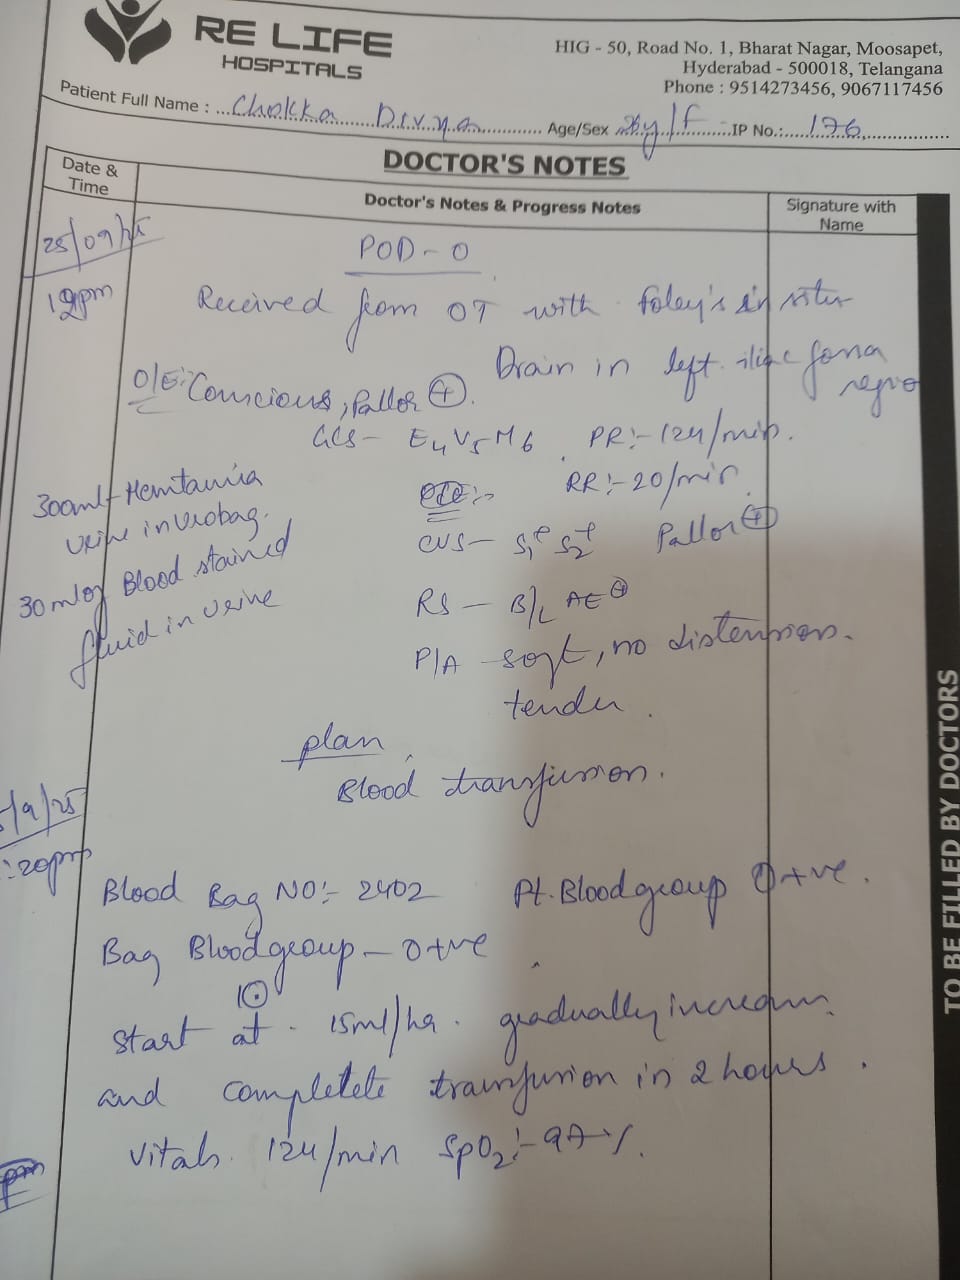 RE LIFE
HOSPITALS
HIG - 50, Road No. 1, Bharat Nagar, Moosapet,
Hyderabad - 500018, Telangana
Phone : 9514273456, 9067117456
Patient Full Name : Chokka Divya Age/Sex y/F IP No.: 176
DOCTOR'S NOTES
Date &
Time
Doctor's Notes & Progress Notes
Signature with
Name
25/09/25
POD - 0
pm
Received from OT with Foley's in situ
Drain in left iliac fossa
regio
O/E:- Conscious, Pallor ⊕.
GCS - E4V5M6 PR:- 124/min.
RR:- 20/min
300ml - Hemtauria
urine in urobag.
CVS - S1+ S2+ Pallor ⊕
30 ml of Blood stained
fluid in urine
RS - B/L AE ⊕
P/A - soft, no distension.
tender.
plan
Blood transfusion.
/9/25
:20pm
Blood Bag NO:- 2402 Pt. Blood group O+ve.
Bag Blood group - O+ve
start at 15ml/hr. gradually increase
and completete transfusion in 2 hours.
Vitals. 124/min SpO2:- 97%.
pm
TO BE FILLED BY DOCTORS